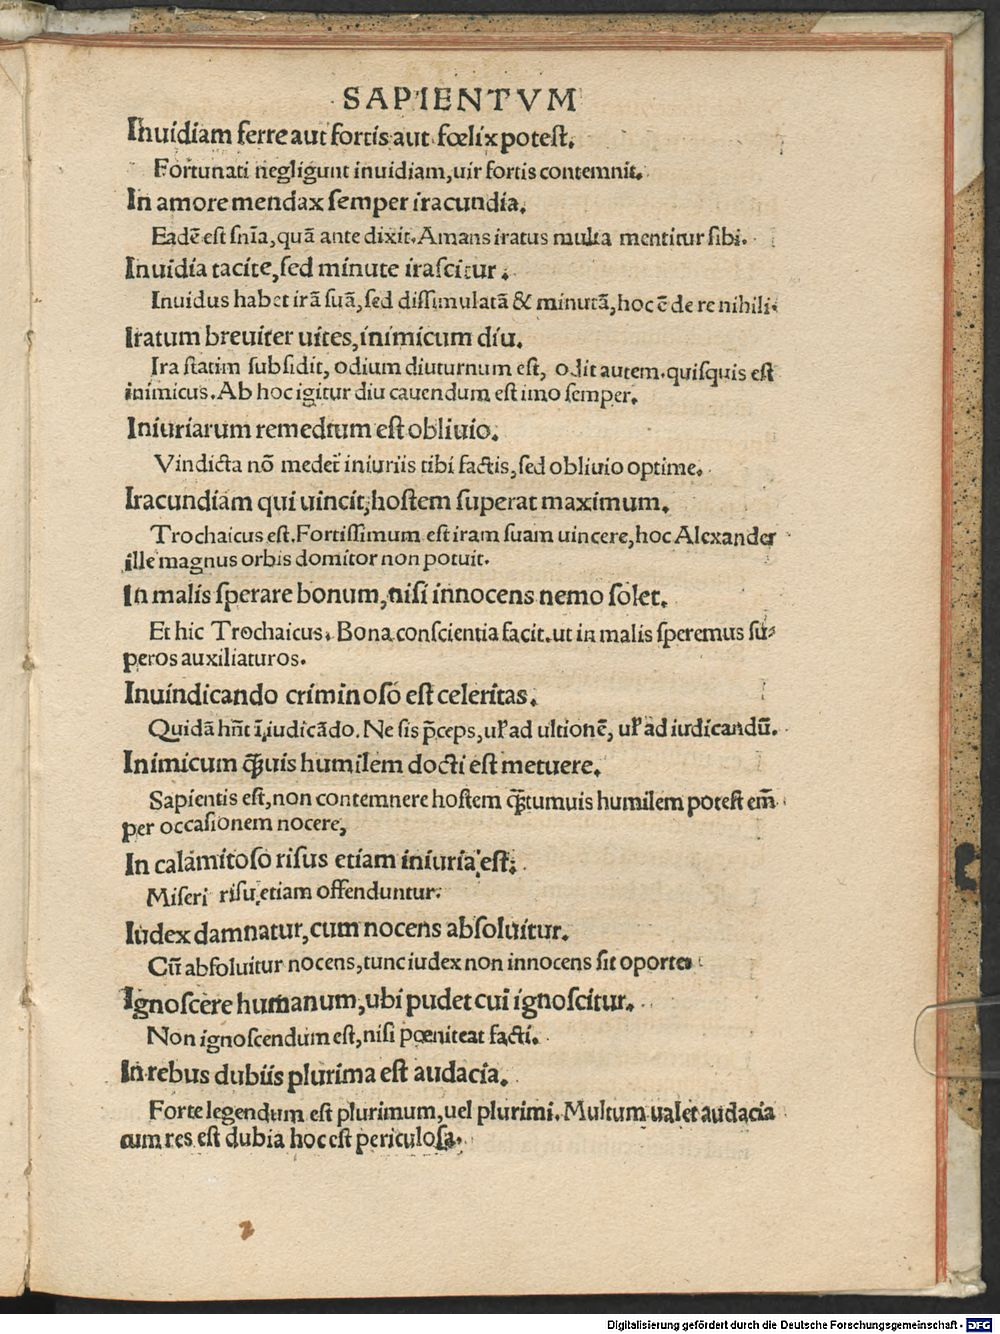 SAPIENTVM
Inuidiam ferre aut fortis aut fœlix potest.
Fortunati negligunt inuidiam, uir fortis contemnit.
In amore mendax semper iracundia.
Eadē est snīa, quā ante dixit. Amans iratus multa mentitur sibi.
Inuidia tacite, sed minute irascitur.
Inuidus habet irā suā, sed dissimulatā & minutā, hoc ē de re nihili.
Iratum breuiter uites, inimicum diu.
Ira statim subsidit, odium diuturnum est, odit autem. quisquis est
inimicus. Ab hoc igitur diu cauendum est imo semper.
Iniuriarum remedium est obliuio.
Vindicta nō medet iniuriis tibi factis, sed obliuio optime.
Iracundiam qui uincit, hostem superat maximum.
Trochaicus est. Fortissimum est iram suam uincere, hoc Alexander
ille magnus orbis domitor non potuit.
In malis sperare bonum, nisi innocens nemo solet.
Et hic Trochaicus. Bona conscientia facit. ut in malis speremus su-
peros auxiliaturos.
Inuindicando criminoso est celeritas.
Quidā hn̄t ī iudicādo. Ne sis p̄ceps, uł ad ultionē, uł ad iudicandū.
Inimicum q̄uis humilem docti est metuere.
Sapientis est, non contemnere hostem q̄tumuis humilem potest em̄
per occasionem nocere,
In calamitoso risus etiam iniuria est.
Miseri risu etiam offenduntur.
Iudex damnatur, cum nocens absoluitur.
Cū absoluitur nocens, tunc iudex non innocens sit oportet
Ignoscere humanum, ubi pudet cui ignoscitur.
Non ignoscendum est, nisi pœniteat facti.
In rebus dubiis plurima est audacia.
Forte legendum est plurimum, uel plurimi. Multum ualet audacia
cum res est dubia hoc est periculosa.
2
Digitalisierung gefördert durch die Deutsche Forschungsgemeinschaft - DFG